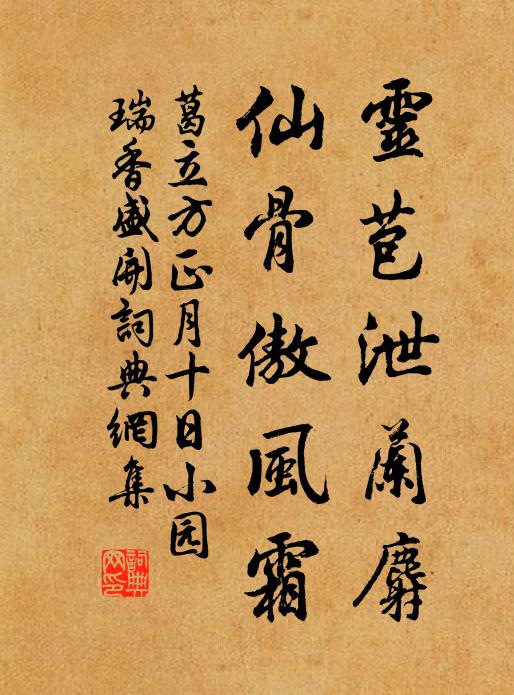 靈苞泄蘭麝
仙骨傲風霜
葛立方正月十日小园
瑞香盛開詞典網集
詞典
网印